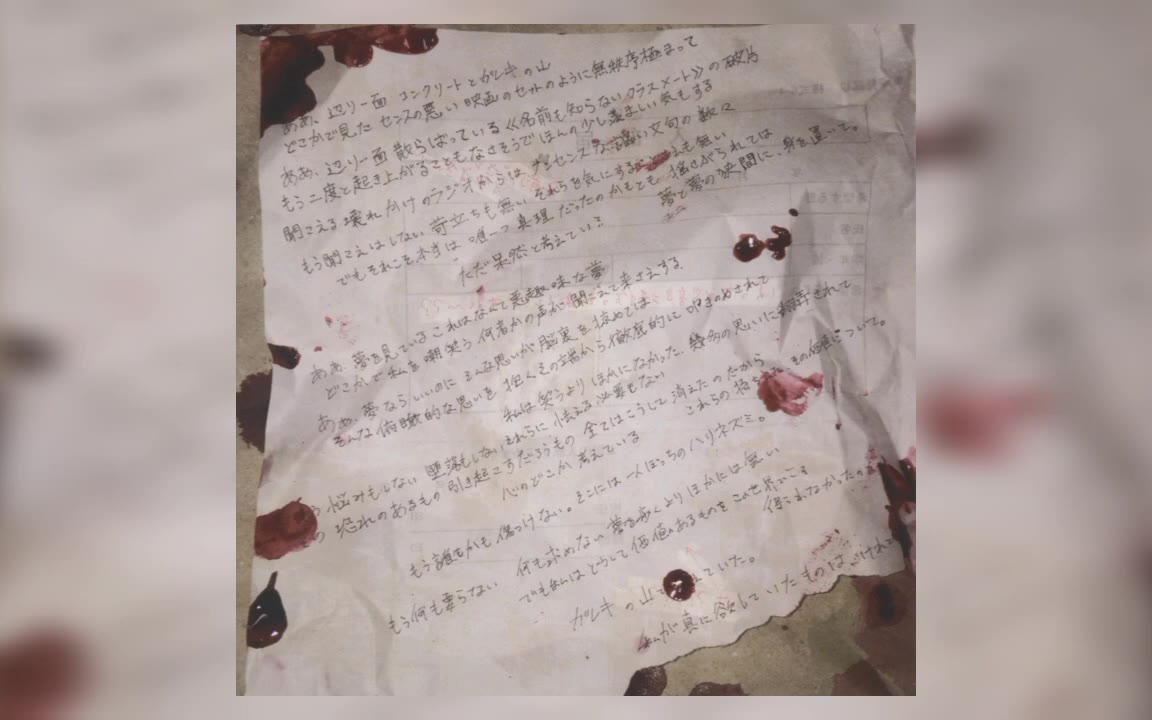 ああ、辺り一面 コンクリートとガレキの山
どこかで見た センスの悪い 映画のセットのように無秩序極まって
ああ、辺り一面 散らばっている 《名前も知らないクラスメート》の破片
もう二度と起き上がることもなさそうで ほんの少し羨ましい気もする
聞こえる 壊れかけのラジオからは ナンセンスな 文句の数々
もう聞こえはしない 苛立ちも無い それらを気にする も無い
でもそれこそ本当は 唯一つ 真理だったのかもとも 揺さぶられては
ただ呆然と考えている 夢と夢の狭間に、身を置いて。
ああ、夢を見ている これはなんて悪趣味な夢
どこかで私を嘲笑う 何者かの声が 聞こえて来さえする
ああ、夢ならいいのに そんな思いが 脳裏を掠めては
そんな俯瞰的な思いを 抱くその端から徹底的に 叩きのめされて
私は笑うよりほかになかった、幾多の思いに翻弄されて
悩みもしない 堕落もしない それらに 怯える必要もない
恐れのあるもの 引き起こすだろうもの 全てはこうして 消えたのだから
心のどこか 考えている これらの 持ち その価値について。
もう誰もかも傷つけない。そこには 一人ぼっちのハリネズミ。
もう何も要らない 何も求めない 夢を歩くよりほかには無い
でも私はどうして価値のあるものを この世界でこそ 得られなかったの
ガレキの山で ていた。
私が真に欲していたものは